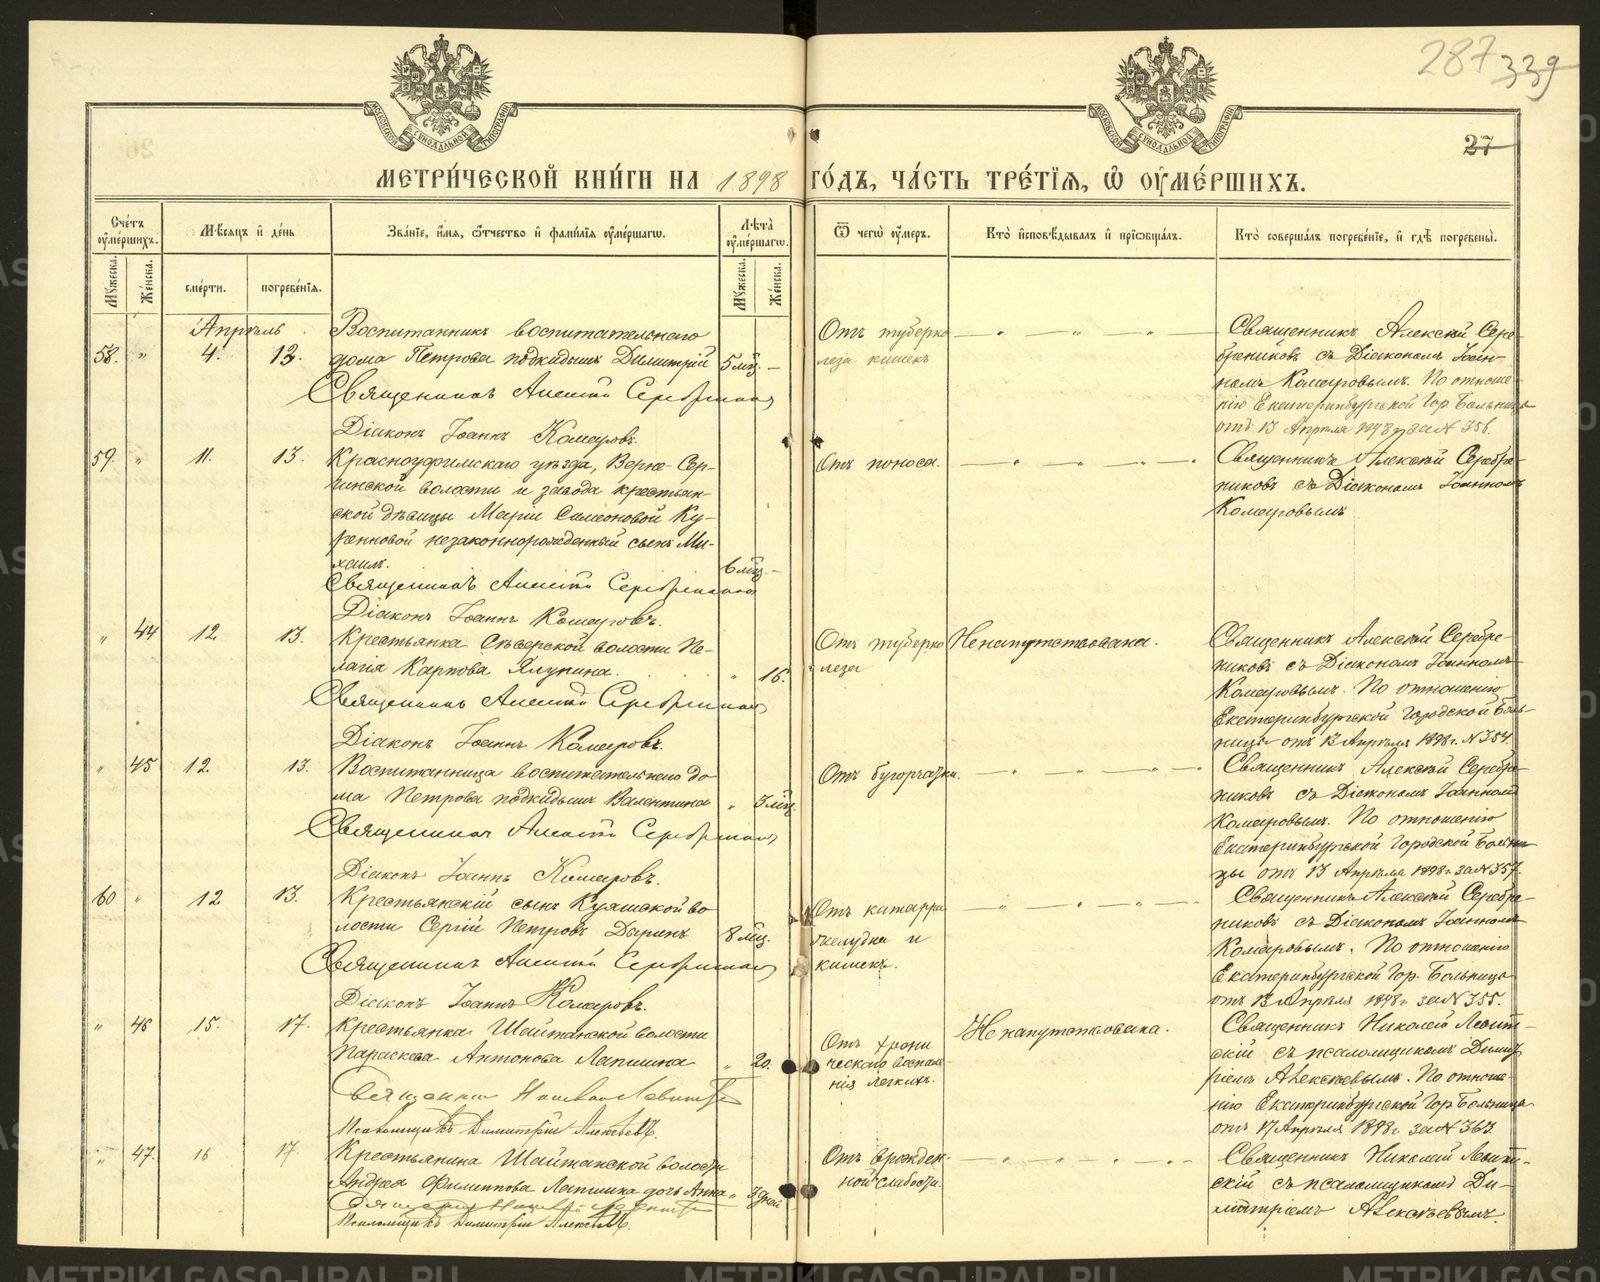 287 339
27
МЕТРИ́ЧЕСКОЙ КНИ́ГИ НА 1898 ГО́ДЪ, ЧА́СТЬ ТРЕ́ТІѦ, Ѽ ОУ҆МЕ́РШИХЪ.
Сче́тъ оу҆ме́ршихъ.
Мѣ́сяцъ и҆ де́нь
Зва́ніе, и҆́мя, ѻ҆́тчество и҆ фами́лія оу҆ме́ршаго.
Лѣ́та оу҆ме́ршаго.
Ѿ чегѡ̀ оу҆́меръ.
Кто̀ и҆сповѣ́дывалъ и҆ прїѡбща́лъ.
Кто̀ соверша́лъ погребе́ніе, и҆ гдѣ̀ погребены̀.
Мꙋ́жеска.
Же́нска.
сме́рти.
погребе́нія.
Мꙋ́жеска.
Же́нска.
Апрѣль
58. " 4. 12.
Воспитанникъ воспитательнаго
дома Петрова подкидышъ Димитрій 5 мц. –
Священникъ Алексій Серебренниковъ
Діаконъ Іоаннъ Комаровъ.
Отъ туберко
леза кишекъ
Священникъ Алексій Сере-
бреников съ Діакономъ Іоан-
номъ Комаровымъ. По отноше-
нію Екатеринбургской Гор. Больницы
отъ 13 Апрѣля 1898 г. за № 356.
59. " 11. 13.
Красноуфимскаго уѣзда, Верхне-Сер-
гинской волости и завода крестьян-
ской дѣвицы Маріи Симеоновой Ку-
ренновой незаконнорожденный сынъ Ми-
хаилъ. 6 мц. –
Священникъ Алексій Серебренниковъ
Діаконъ Іоаннъ Комаровъ.
Отъ поноса.
Священникъ Алексій Серебре-
никовъ съ Діакономъ Іоанномъ
Комаровымъ
" 44 12 13.
Крестьянка Сысерской волости Пе-
лагія Карпова Ялунина. " 16.
Священникъ Алексій Серебренниковъ
Діаконъ Іоаннъ Комаровъ.
Отъ туберко
леза
Ненапутствована.
Священникъ Алексій Серебре-
никовъ съ Діакономъ Іоанномъ
Комаровымъ. По отношенію
Екатеринбургской Городской Боль-
ницы отъ 13 Апрѣля 1898 г. № 354.
" 45 12 13.
Воспитанница воспитательнаго до-
ма Петрова подкидышъ Валентина " 3 мц.
Священникъ Алексій Серебренниковъ
Діаконъ Іоаннъ Комаровъ.
Отъ бугорчатки.
Священникъ Алексій Серебре-
никовъ съ Діакономъ Іоанномъ
Комаровымъ. По отношенію
Екатеринбургской Городской Больни
цы отъ 13 Апрѣля 1898 г. за № 357.
60 " 12 13.
Крестьянскій сынъ Куяшской во
лости Сергій Петровъ Дыринъ 8 мц.
Священникъ Алексій Серебренниковъ
Діаконъ Іоаннъ Комаровъ.
Отъ катарра
желудка и
кишекъ.
Священникъ Алексій Серебре-
никовъ съ Діакономъ Іоанномъ
Комаровымъ. По отношенію
Екатеринбургской Гор. Больницы
отъ 13 Апрѣля 1898 г. за № 355.
" 46 15. 17.
Крестьянка Шайтанской волости
Параскева Антонова Лапшина " 20.
Священникъ Николай Левитскій
Псаломщикъ Димитрій Алексѣевъ.
Отъ хрони
ческаго воспале-
нія легкихъ.
Ненапутствована.
Священникъ Николай Левит-
скій съ псаломщикомъ Димит
ріемъ Алексѣевымъ. По отноше-
нію Екатеринбургской Гор. Больницы
отъ 17 Апрѣля 1898 г. за № 363.
" 47 16 17.
Крестьянина Шайтанской волости
Андрея Филиппова Лапшина дочь Анна " 3 дней
Священникъ Николай Левитскій
Псаломщикъ Димитрій Алексѣевъ.
Отъ врожден-
ной слабости.
Священникъ Николай Левит-
скій съ псаломщикомъ Ди-
митріемъ Алексѣевымъ.